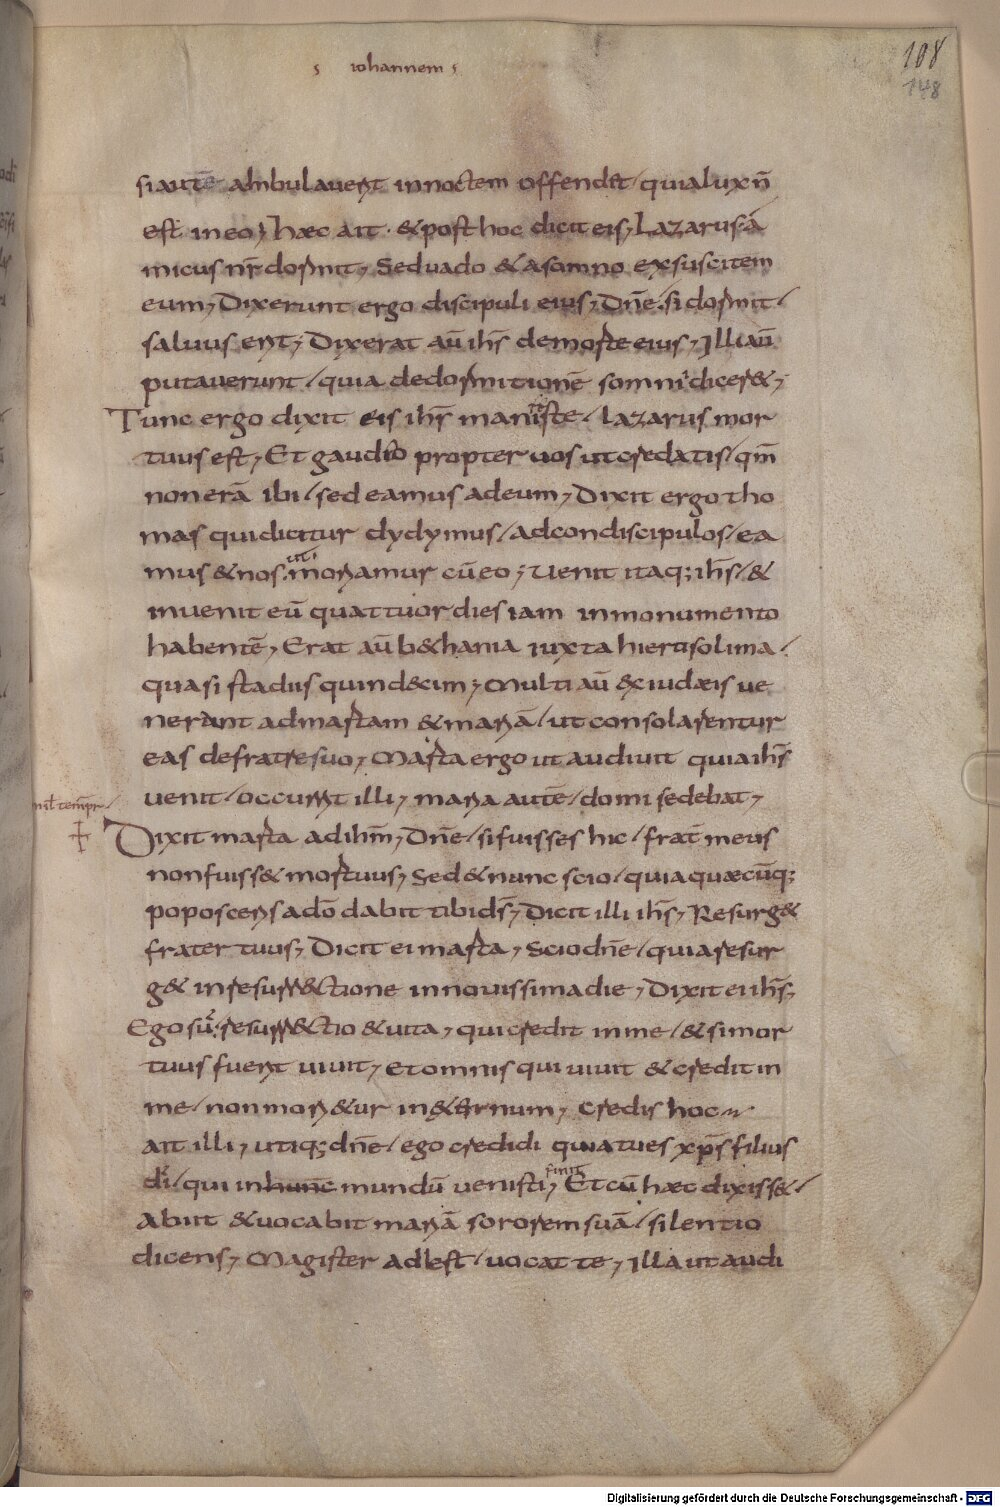 s iohannem s
108
148
si autē ambulaverit in noctem offendit / quia lux n̄
est in eo; hæc ait · & post hoc dicit eis; Lazarus a
micus nr̄ dormit; Sed vado & a somno exsuscitem
eum; Dixerunt ergo discipuli eius; Dn̄e · si dormit /
salvus erit; Dixerat aū ih̄s de morte eius; Illi aū
putaverunt / quia de dormitionē somni dicer&;
Tunc ergo dixit eis ih̄s manifeste / lazarus mor
tuus est; Et gaudeo propter vos ut credatis / qm̄
non erā ibi / sed eamus ad eum; Dixit ergo tho
mas qui dicitur dydymus / ad condiscipulos / ea
mus & nos · ut moriamur cū eo; Venit itaq; ih̄s / &
invenit eū quattuor dies iam in monumento
habentē; Erat aū b&hania iuxta hierusolima /
quasi stadiis quindecim; Multi aū ex iudæis ve
nerant ad martam & mariā / ut consolarentur
eas de fratre suo; Marta ergo ut audivit quia ih̄s
venit / occurrit illi; maria autē / domi sedebat;
Dixit marta ad ihm̄; Dn̄e / si fuisses hic / frat̄ meus
non fuiss& mortuus; Sed & nunc scio / quia quæcūq;
poposceris a dō dabit tibi ds̄; Dicit illi ih̄s; Resurg&
frater tuus; Dicit ei marta; Scio dn̄e / quia resur
g& in resurr&ctione in novissima die; Dixit ei ih̄s;
Ego sū resurr&ctio & vita; qui credit in me / & si mor
tuus fuerit vivit; et omnis qui vivit & credit in
me / non mori&ur in &ernum; Credis hoc
ait illi; utiq; dn̄e / ego credidi quia tu es xp̄s filius
dī / qui in hunc mundū venisti; finit Et cū hæc dixiss& /
abiit & vocabit mariā sororem suā / silentio
dicens; Magister adest / vocat te; Illa ut audi
Digitalisierung gefördert durch die Deutsche Forschungsgemeinschaft - DFG